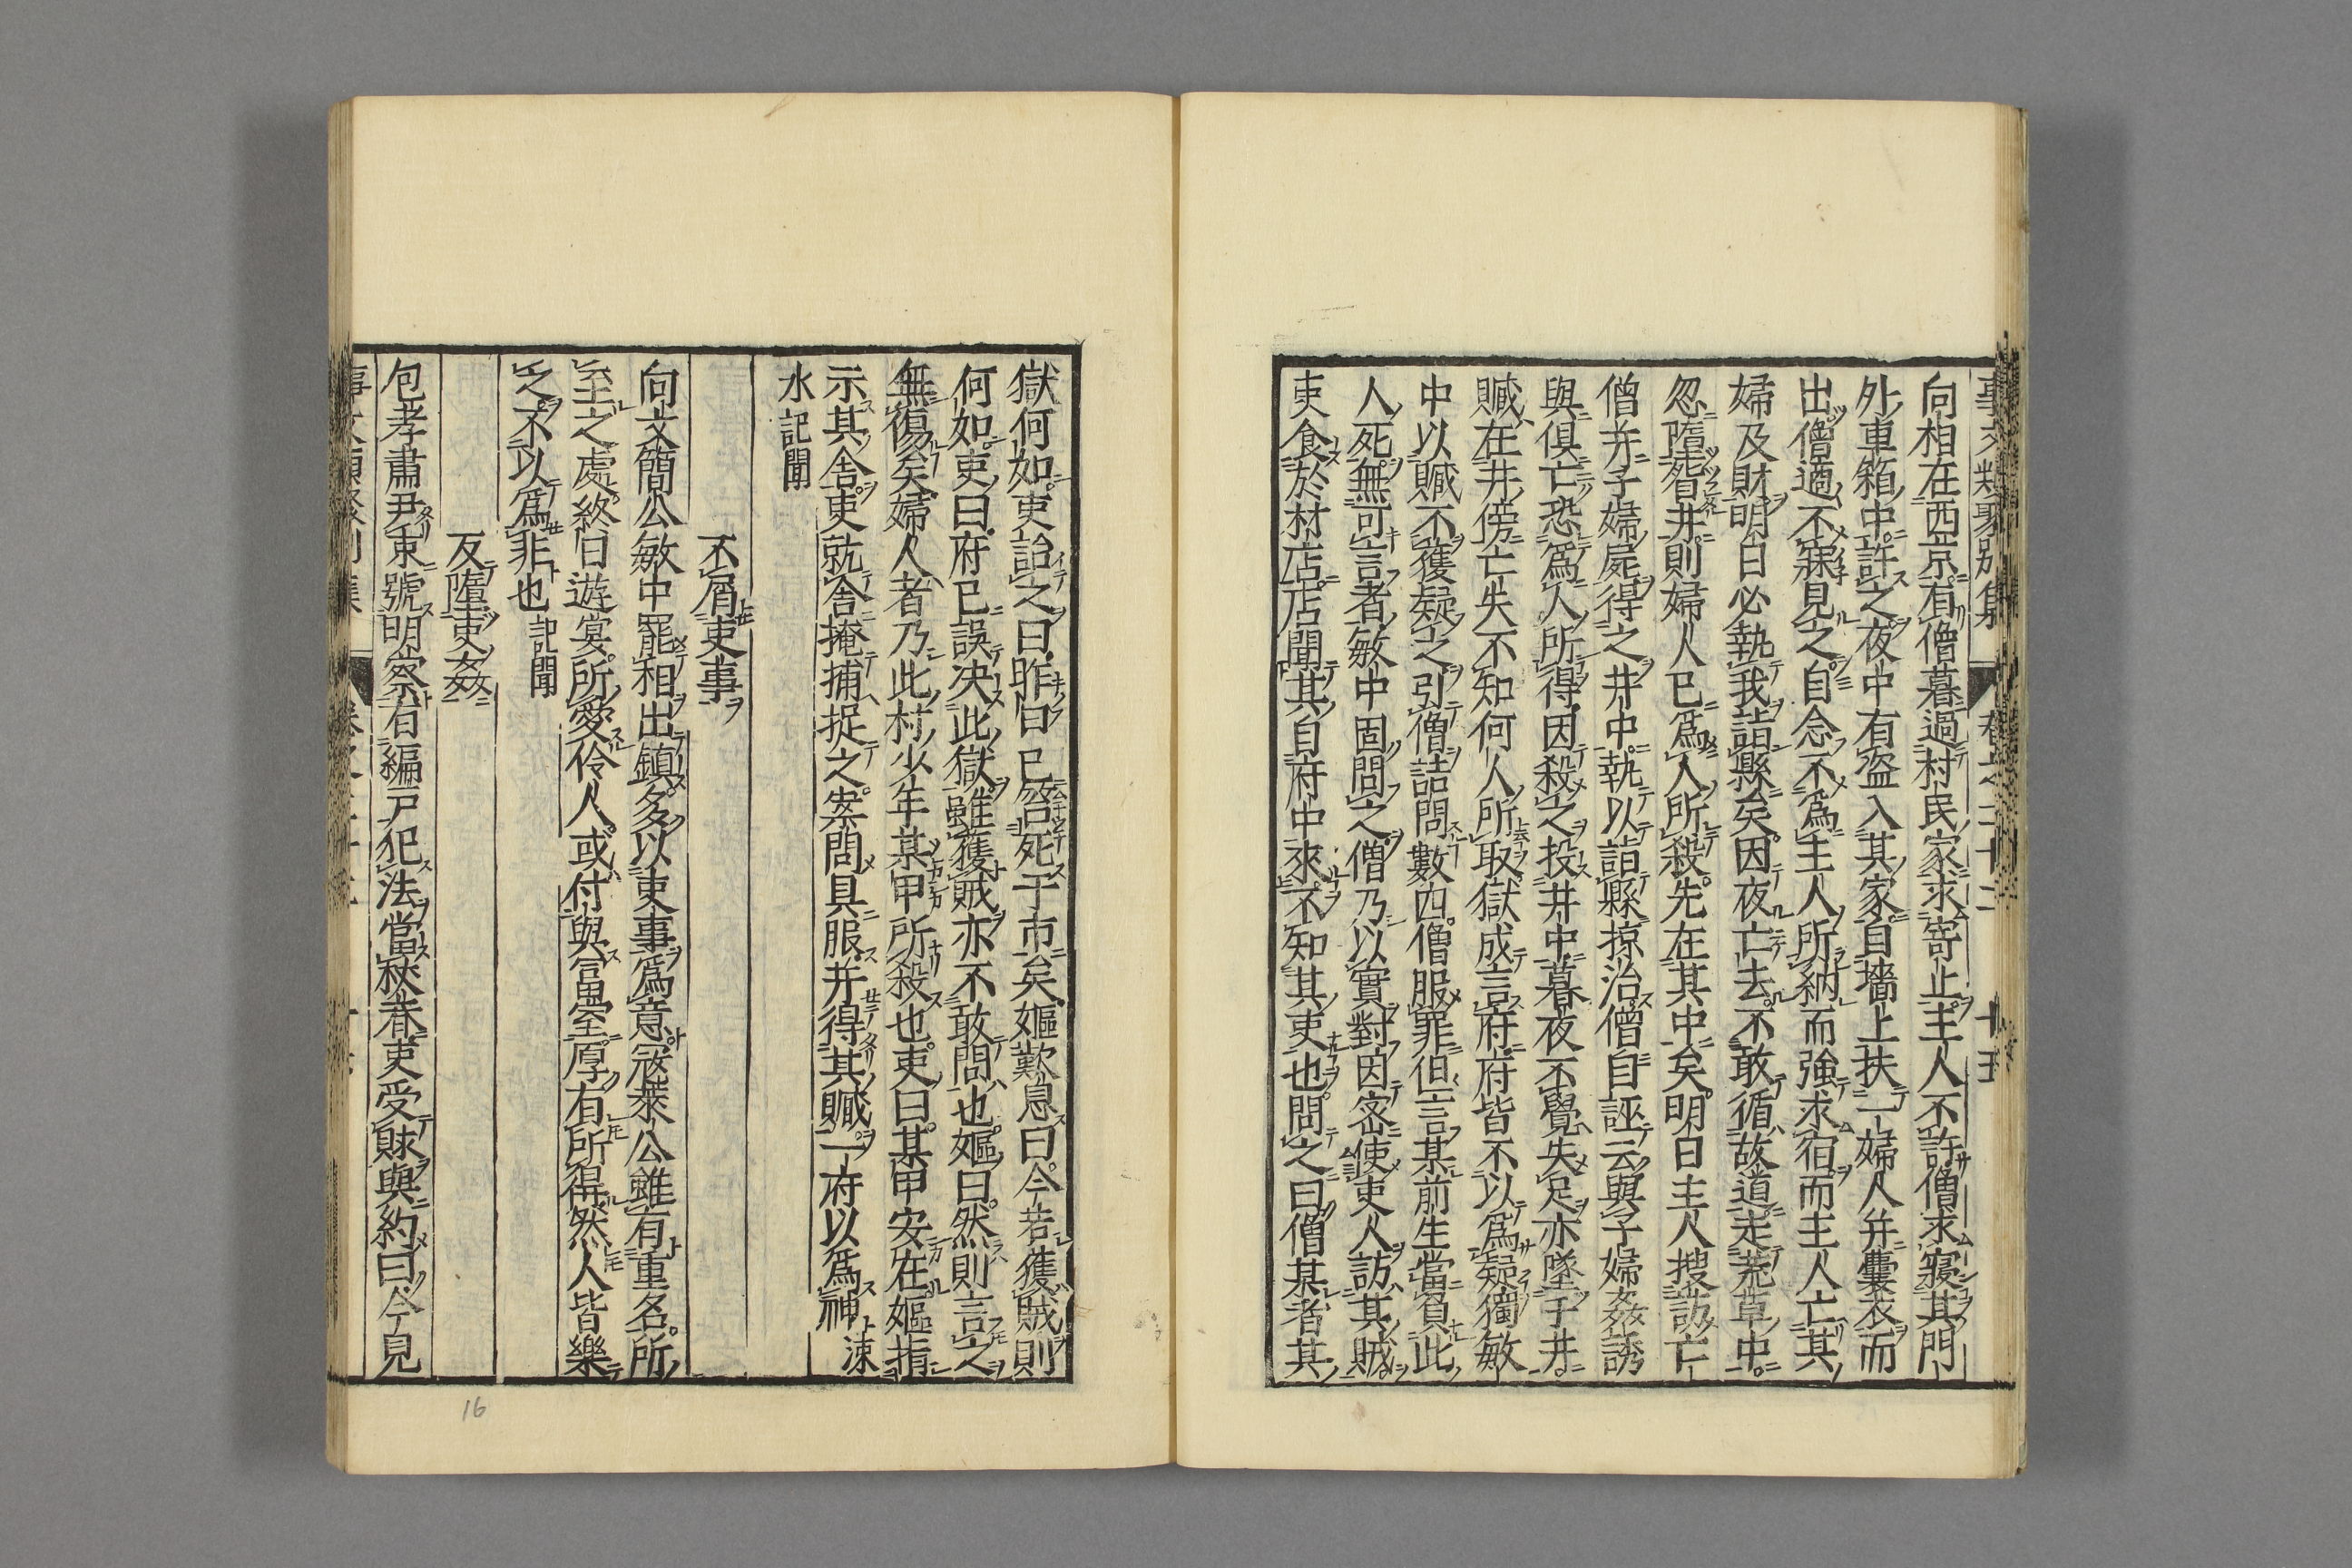 事文類聚別集 卷之二十二 十五
向相在西京有僧暮過村民家求寄止主人不許僧求寢其門
外車箱中許之夜中有盗入其家自墻上扶一婦人并囊衣而
出僧適不寐見之自念不爲主人所納而強求宿而主人亡其
婦及財明白必執我詣縣矣因夜亡去不敢循故道走荒草中
忽墮眢井則婦人已爲人所殺先在其中矣明日主人搜訪亡
僧并子婦屍得之井中執以詣縣掠治僧自誣云與子婦姦誘
與俱亡恐爲人所得因殺之投井中暮夜不覺失足亦墜于井
贓在井傍亡失不知何人所取獄成言府府皆不以爲疑獨敏
中以贓不獲疑之引僧詰問數四僧服罪但言某前生當負此
人死無可言者敏中固問之僧乃以實對因密使吏人訪其賊
吏食於村店店聞其自府中來不知其吏也問之曰僧某者其
獄何如吏詒之曰昨日已笞死于市矣嫗歎息曰今若獲賊則
何如吏曰府已誤决此獄雖獲賊亦不敢問也嫗曰然則言之
無傷矣婦人者乃此村少年某甲所殺也吏曰某甲安在嫗指
示其舍吏就舍掩捕捉之案問具服并得其贓一府以爲神涑
水記聞
不屑吏事
向文簡公敏中罷相出鎮多以吏事爲意冦萊公雖有重名所
至之處終日遊宴所愛伶人或付與冨室厚有所得然人皆樂
之不以爲非也記聞
反墮吏姦
包孝肅尹東號明察有編戸犯法當杖春吏受賕與約曰今見